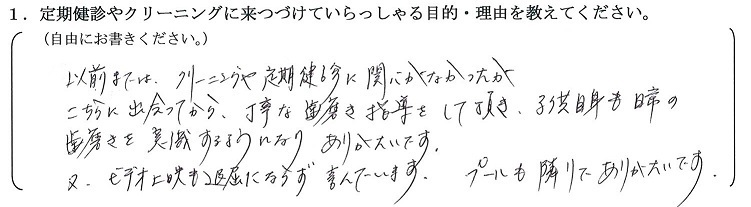 1．定期健診やクリーニングに来つづけていらっしゃる目的・理由を教えてください。
（自由にお書きください。）
以前までは、クリーニングや定期健診に関心がなかったが
こちらに出会ってから、丁寧な歯磨き指導をして頂き、子供自身も日常の
歯磨きを意識するようになり ありがたいです。
又、ビデオ上映も退屈にならず 喜んでいます。 プールも隣りで ありがたいです。